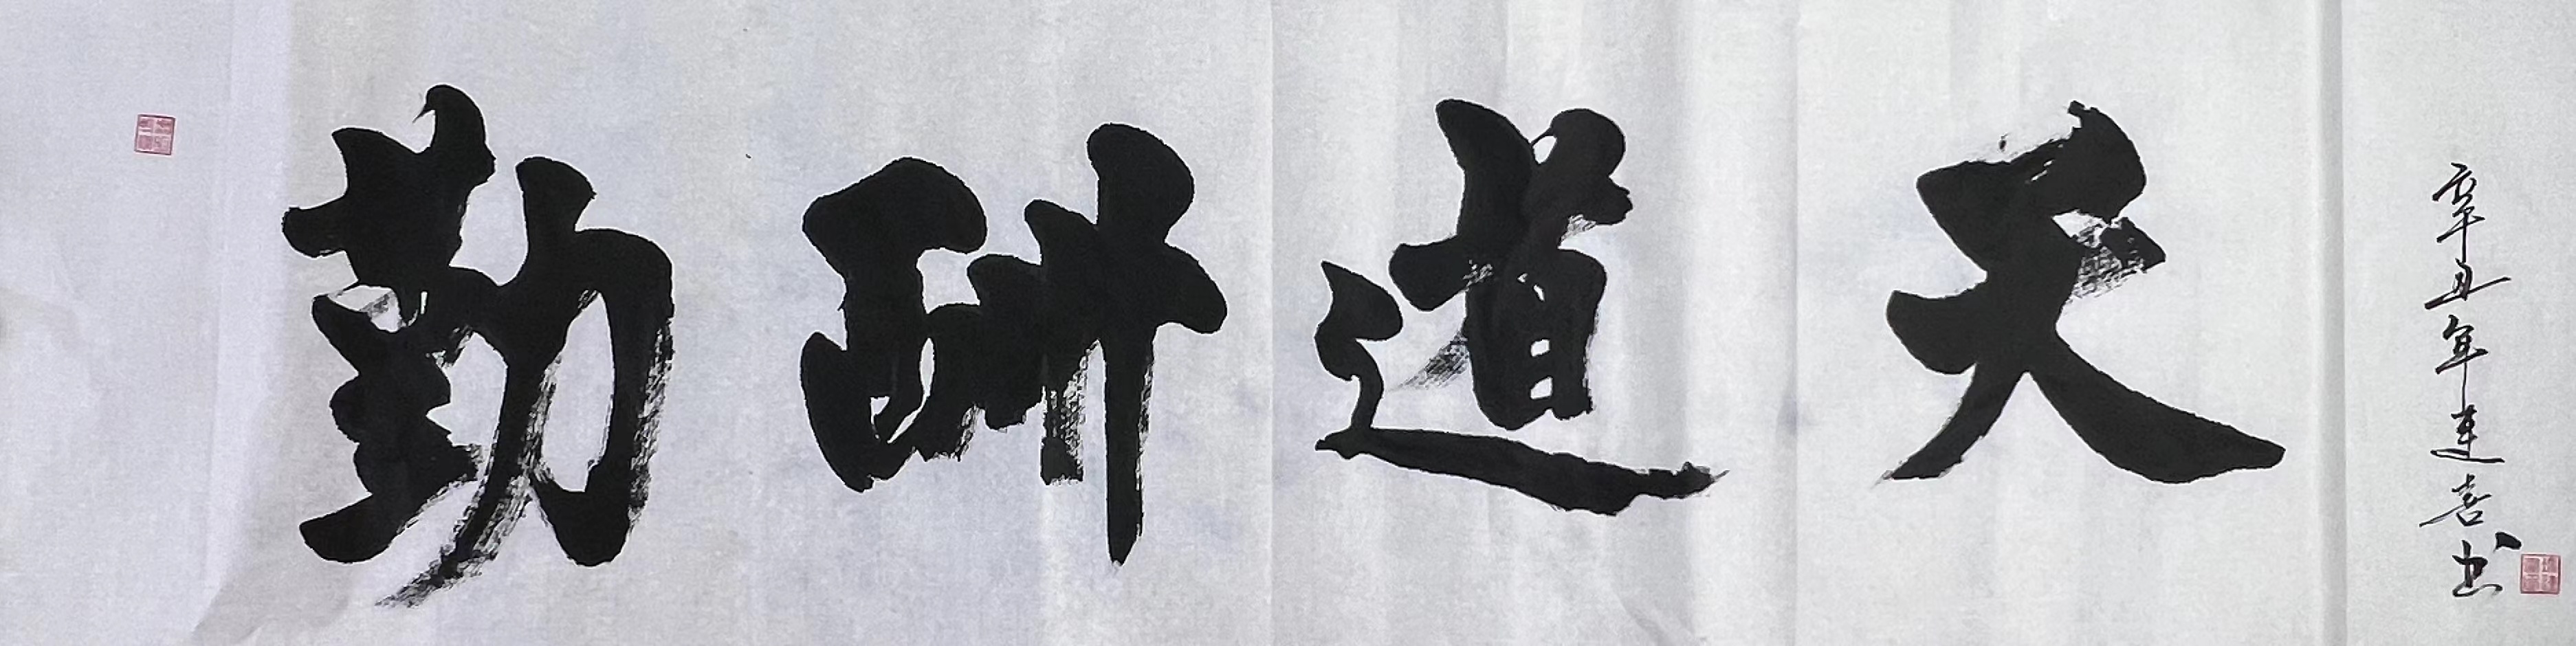 天道酬勤
辛丑年连喜书